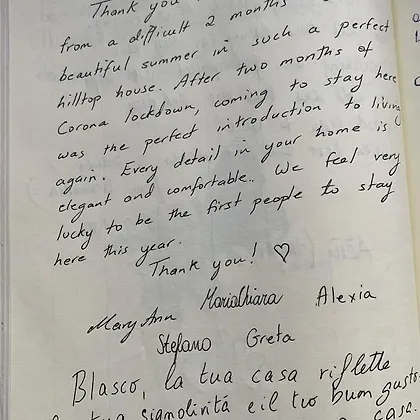 Thank you
from a difficult 2 months
beautiful summer in such a perfect
hilltop house. After two months of
Corona lockdown, coming to stay here
was the perfect introduction to living
again. Every detail in your home is
elegant and comfortable.. We feel very
lucky to be the first people to stay
here this year.
Thank you! ♡
Mary Ann MariaChiara Alexia
Stefano Greta
Blasco, la tua casa riflette
e il tuo buon gusto
casa